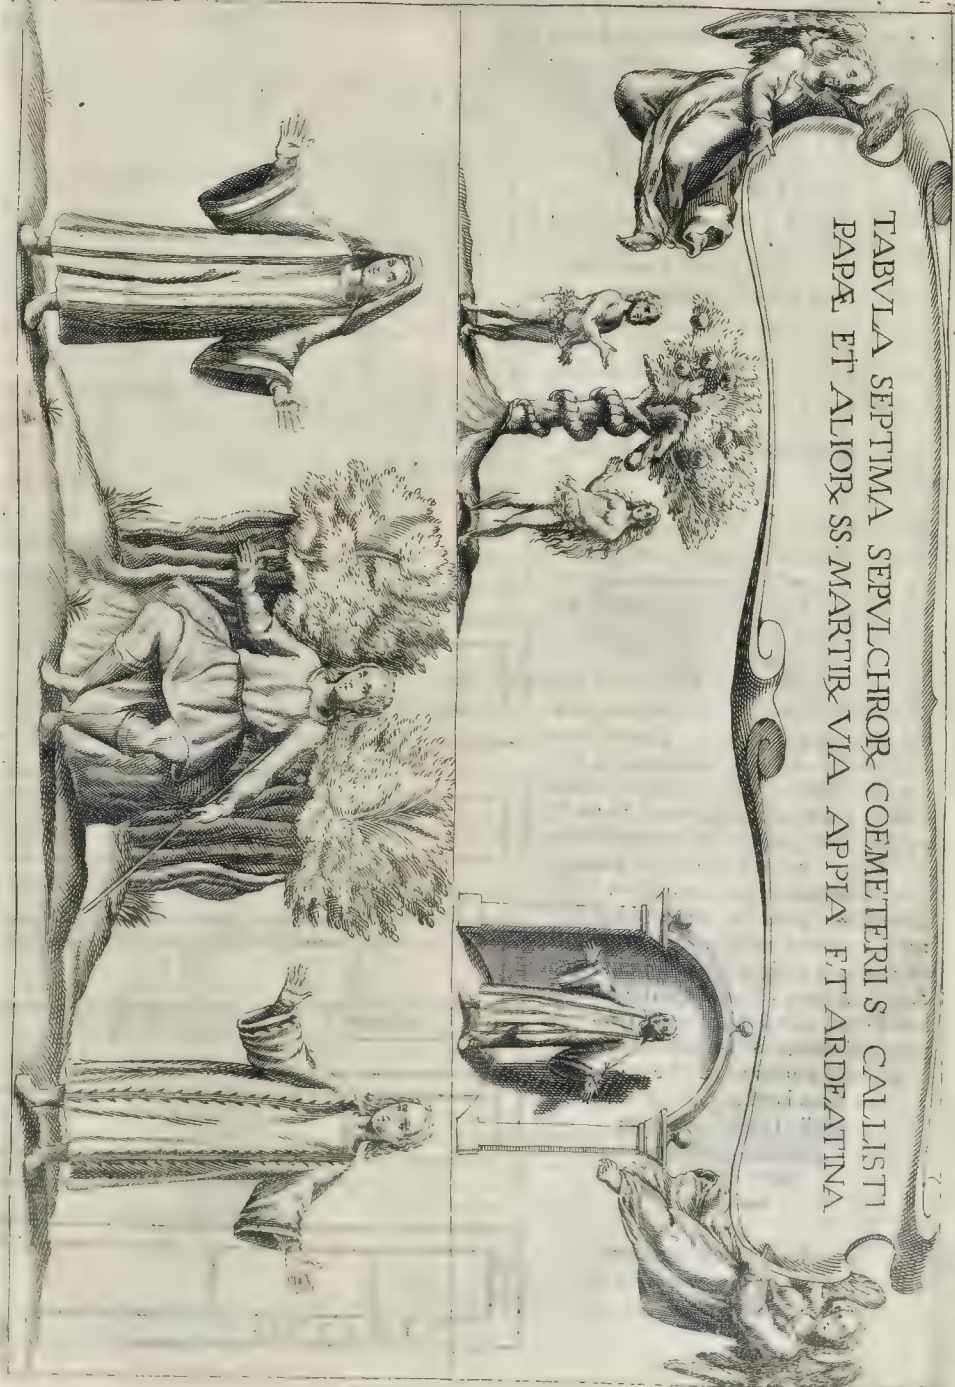 TABVLA SEPTIMA SEPVLCHROR COEMETERII S· CALLISTI
PAPÆ ET ALIOR SS· MARTIR VIA APPIA ET ARDEATINA